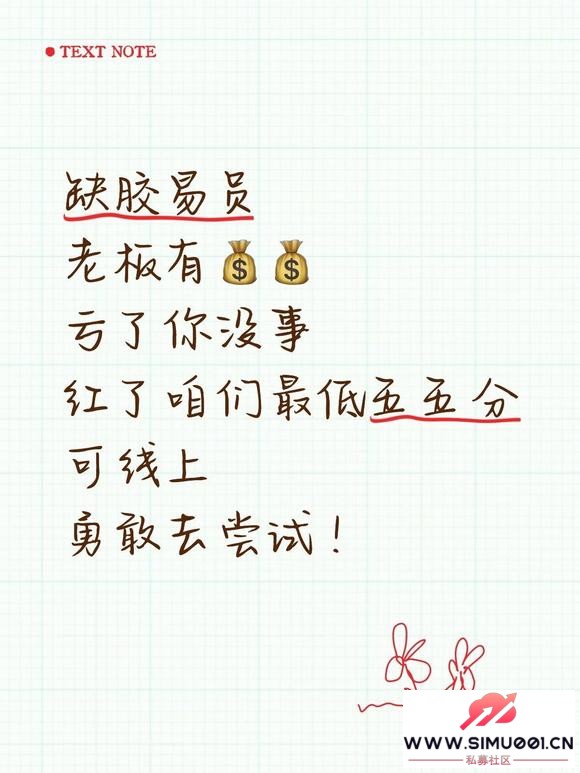 TEXT NOTE
缺胶易员
老板有💰💰
亏了你没事
红了咱们最低五五分
可线上
勇敢去尝试！
WWW.SIMU001.CN
私募社区